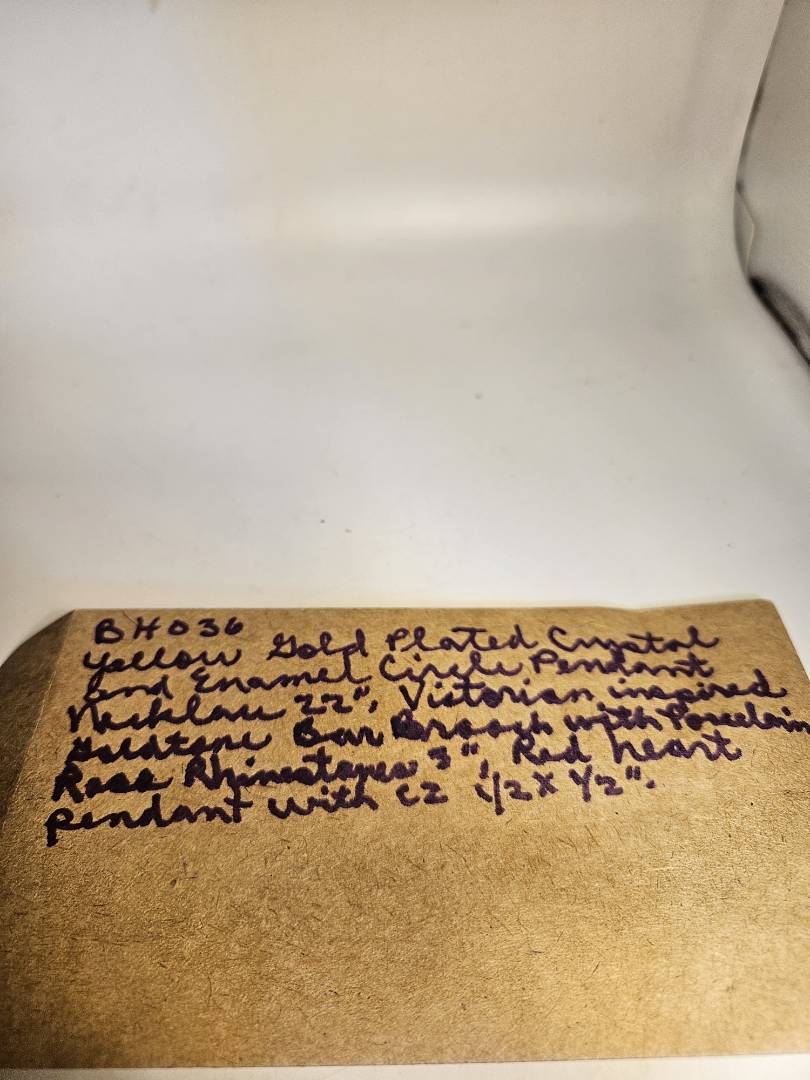 BH036
Yellow Gold Plated Crystal
and Enamel Circle Pendant
Necklace 22", Victorian inspired
Goldtone Bar Brooch with Porcelain
Rose Rhinestones 3", Red heart
pendant with CZ 1/2 x 1/2".